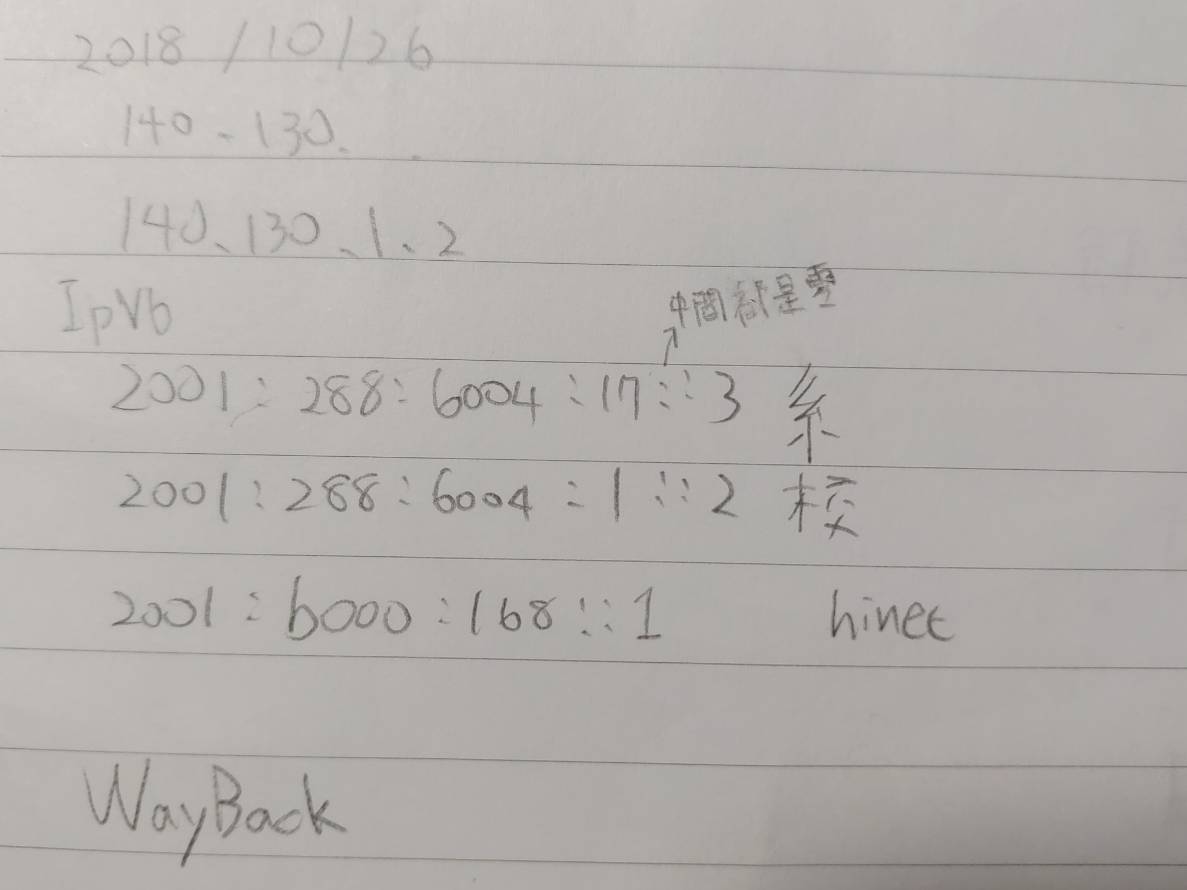 2018/10/26
140.130.
140.130.1.2
IpV6
中間都是零
2001:288:6004:17::3 系
2001:288:6004:1::2 校
2001:b000:168::1 hinet
WayBack